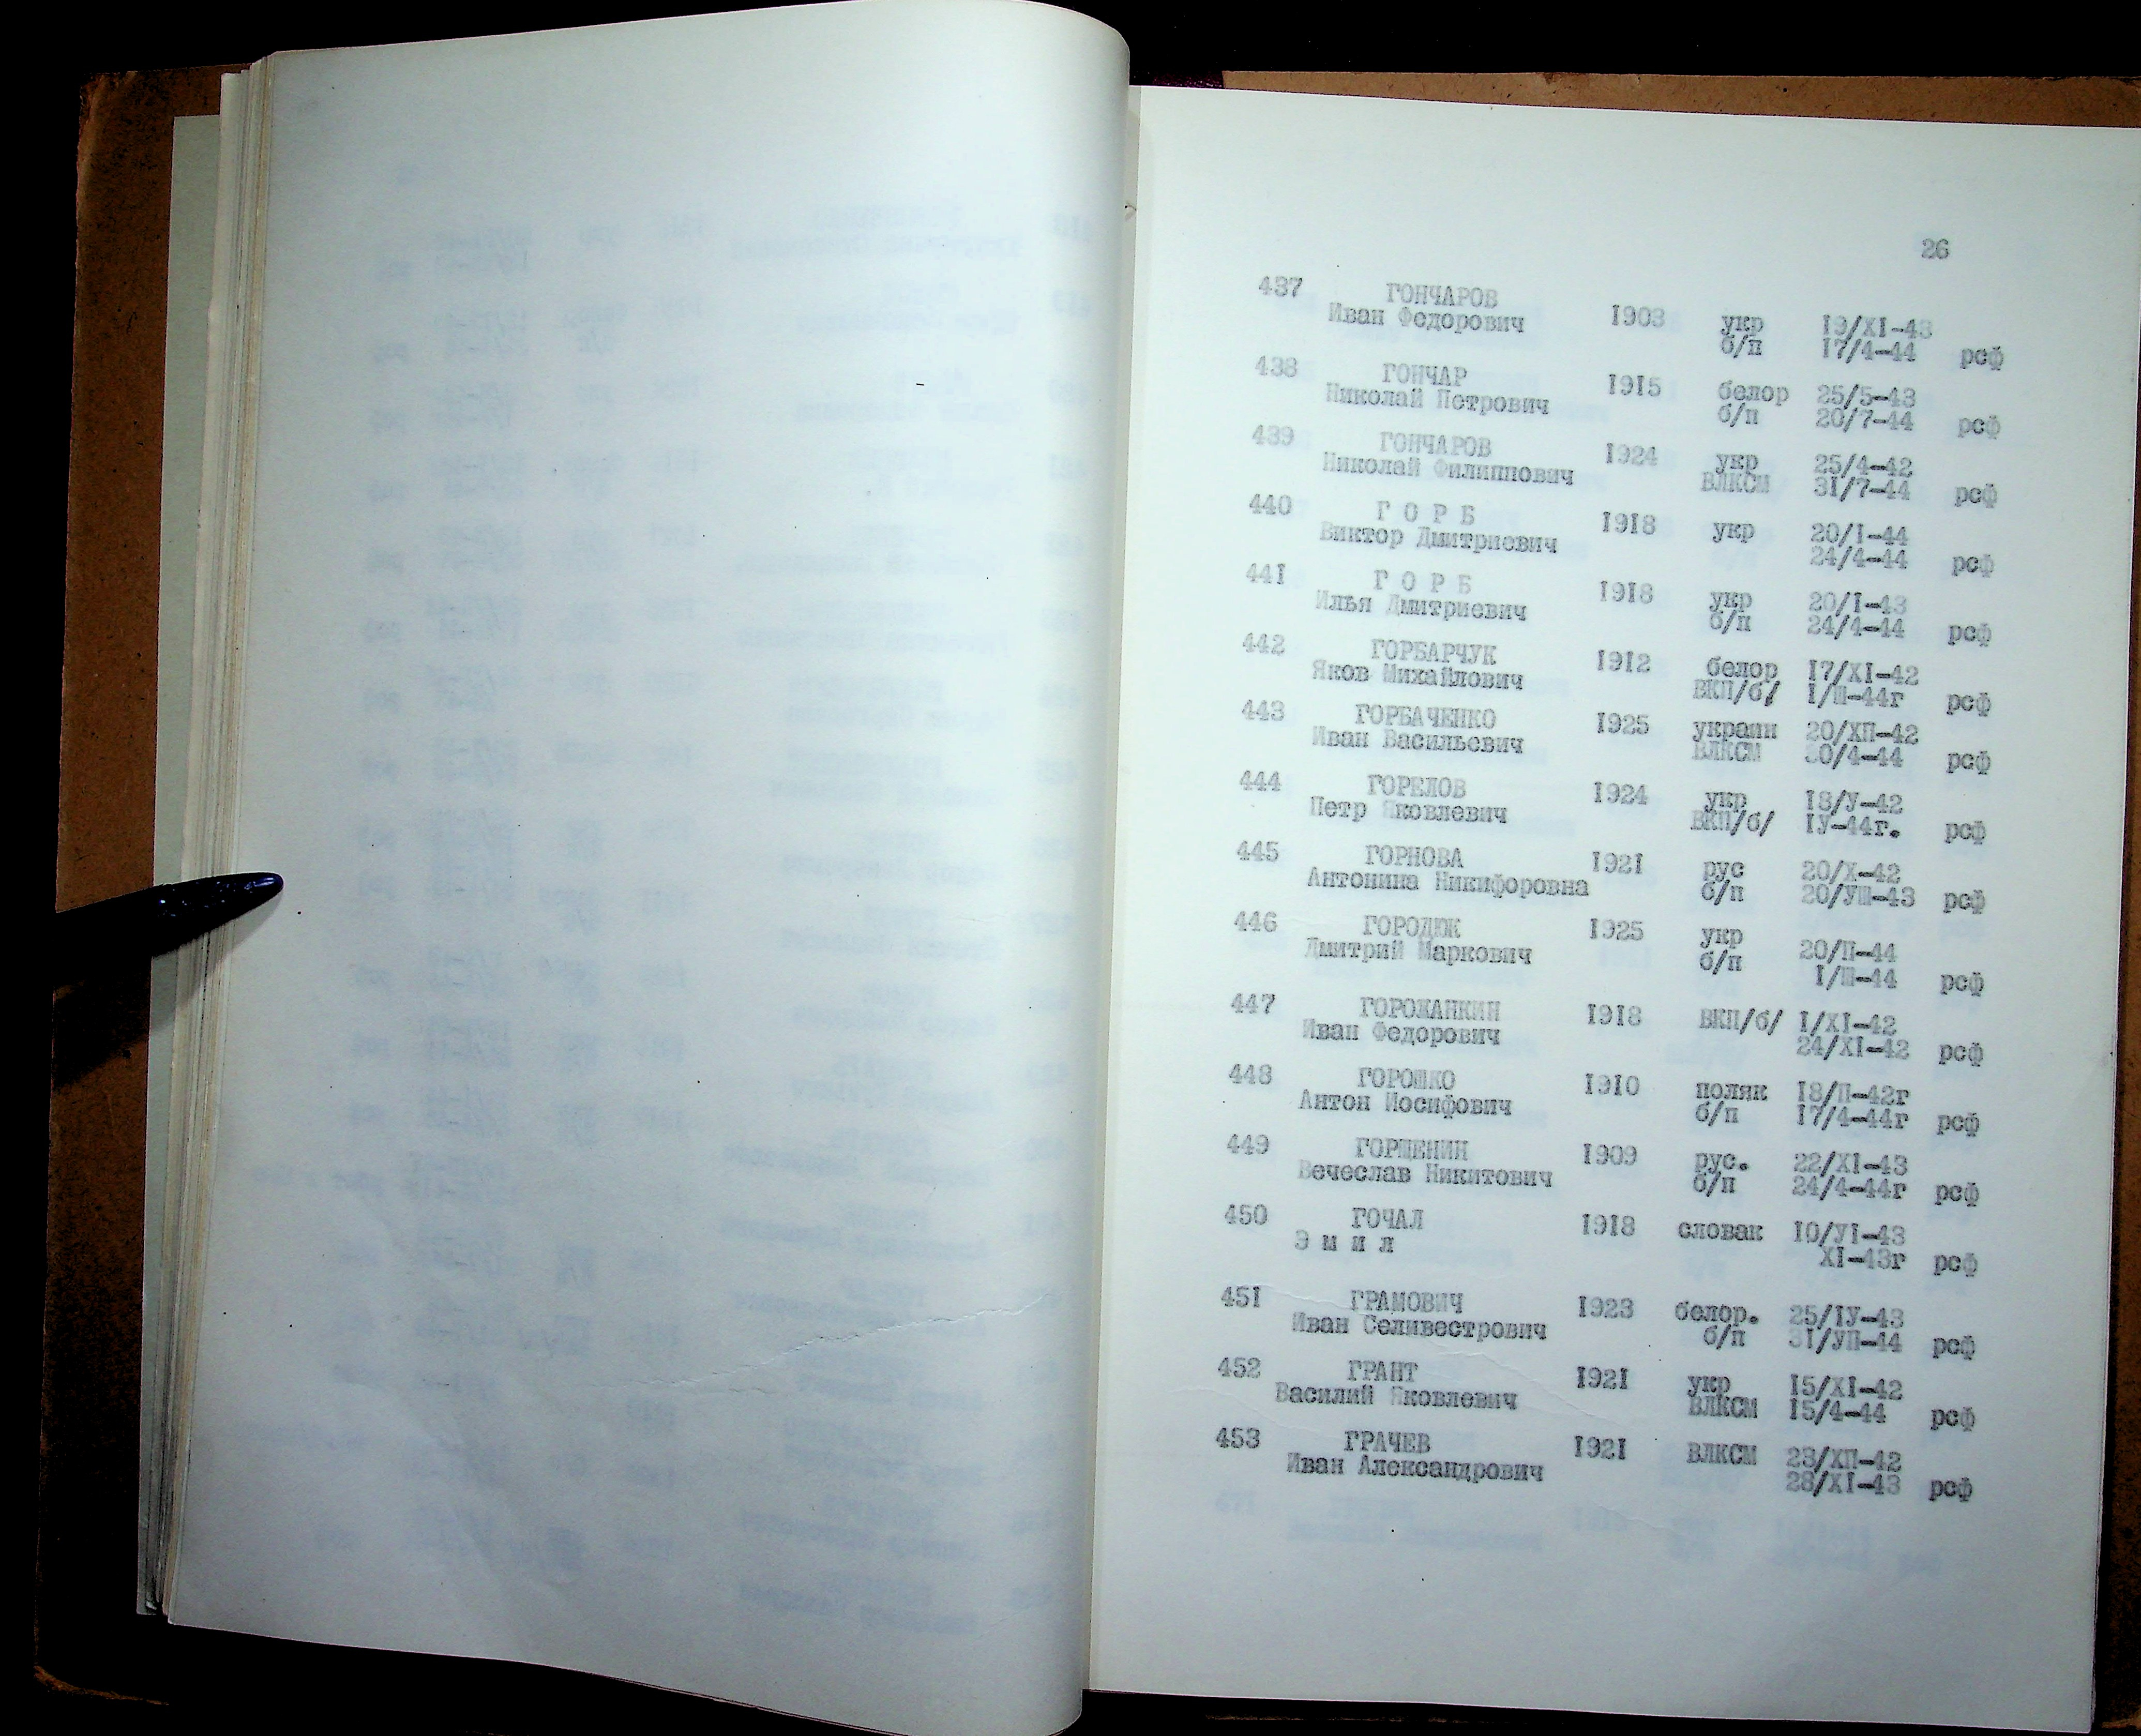 26
437 ГОНЧАРОВ
Иван Федорович 1903 укр 19/XI-43
б/п 17/4-44 рсф
438 ГОНЧАР
Николай Петрович 1915 белор 25/5-43
б/п 20/7-44 рсф
439 ГОНЧАРОВ
Николай Филиппович 1924 укр 25/4-42
ВЛКСМ 31/7-44 рсф
440 Г О Р Б
Виктор Дмитриевич 1918 укр 20/I-44
24/4-44 рсф
441 Г О Р Б
Илья Дмитриевич 1918 укр 20/I-43
б/п 24/4-44 рсф
442 ГОРБАРЧУК
Яков Михайлович 1912 белор 17/XI-42
ВКП/б/ I/Ш-44г рсф
443 ГОРБАЧЕНКО
Иван Васильевич 1925 украин 20/ХП-42
ВЛКСМ 30/4-44 рсф
444 ГОРЕЛОВ
Петр Яковлевич 1924 укр 18/У-42
ВКП/б/ IУ-44г. рсф
445 ГОРНОВА
Антонина Никифоровна 1921 рус 20/Х-42
б/п 20/УШ-43 рсф
446 ГОРОДЮК
Дмитрий Маркович 1925 укр 20/П-44
б/п I/Ш-44 рсф
447 ГОРОЖАНКИН
Иван Федорович 1918 ВКП/б/ I/XI-42
24/XI-42 рсф
448 ГОРОШКО
Антон Иосифович 1910 поляк 18/П-42г
б/п 17/4-44г рсф
449 ГОРЩЕНИН
Вечеслав Никитович 1909 рус. 22/XI-43
б/п 24/4-44г рсф
450 ГОЧАЛ
Э м и л 1918 словак 10/УI-43
XI-43г рсф
451 ГРАМОВИЧ
Иван Селивестрович 1923 белор. 25/IУ-43
б/п 31/УП-44 рсф
452 ГРАНТ
Василий Яковлевич 1921 укр 15/XI-42
ВЛКСМ 15/4-44 рсф
453 ГРАЧЕВ
Иван Александрович 1921 ВЛКСМ 23/ХП-42
28/XI-43 рсф